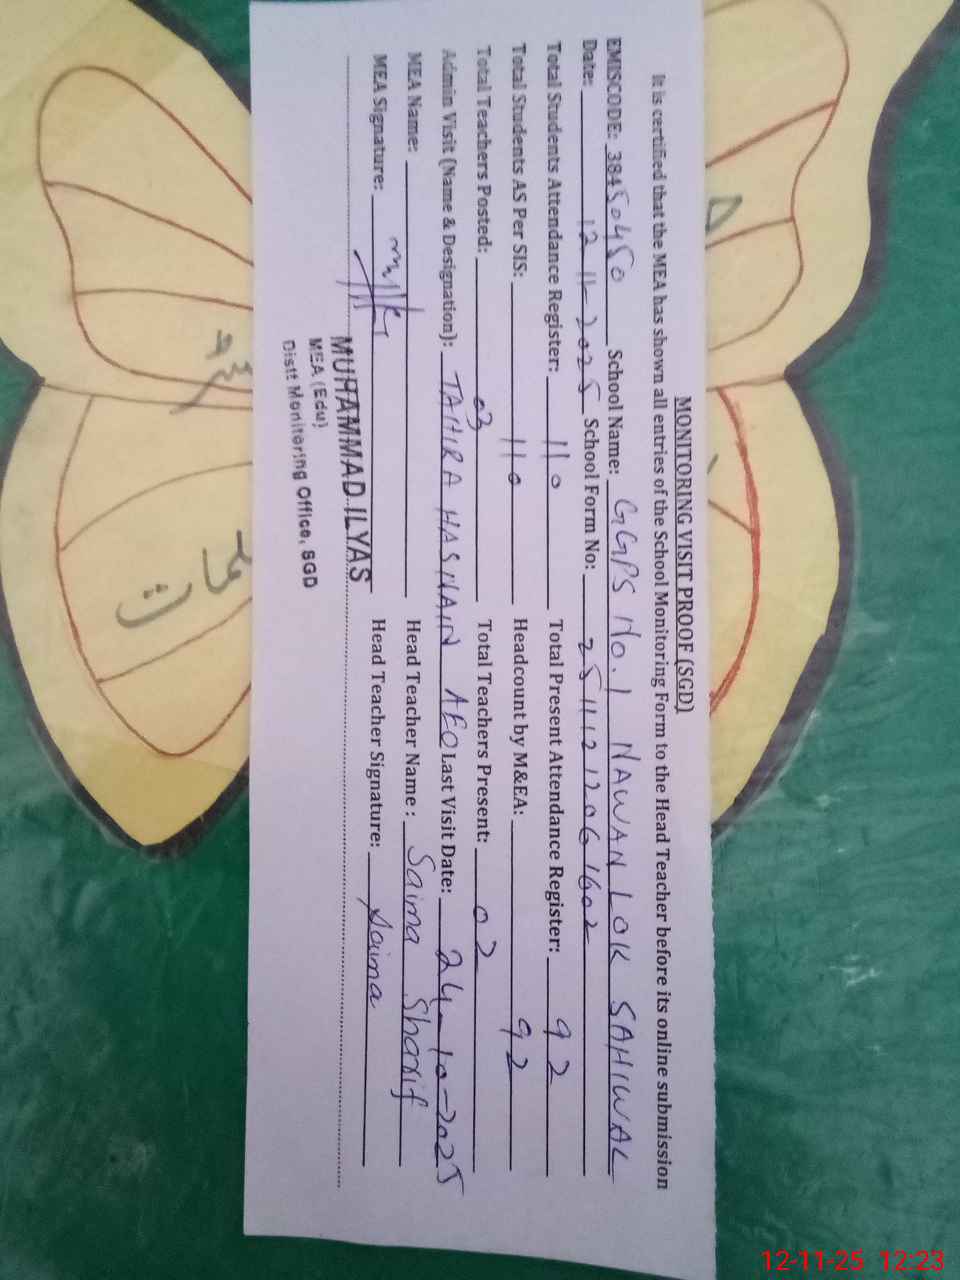 MONITORING VISIT PROOF (SGD)
It is certified that the MEA has shown all entries of the School Monitoring Form to the Head Teacher before its online submission
EMISCODE: 38450450 School Name: GGPS No. 1 NAWAN LOK SAHIWAL
Date: 12-11-2025 School Form No: 25111212061602
Total Students Attendance Register: 110 Total Present Attendance Register: 92
Total Students AS Per SIS: 110 Headcount by M&EA: 92
Total Teachers Posted: 03 Total Teachers Present: 02
Admin Visit (Name & Designation): TAHIRA HASNAIN AEO Last Visit Date: 24-10-2025
MEA Name: Head Teacher Name: Saima Sharif
MEA Signature: Head Teacher Signature: Saima
MUHAMMAD ILYAS
MEA (Edu)
Distt Monitoring Office, SGD
12-11-25 12:23